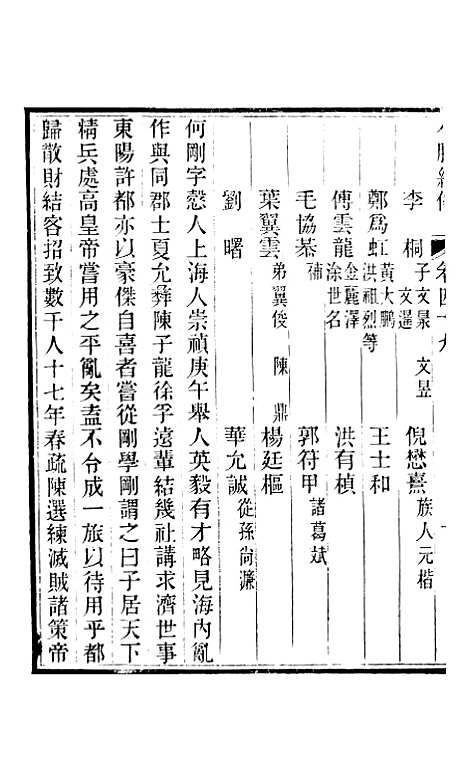 小腆紀傳 卷四十九
李桐 子文杲 文昱 文暹 倪懋熹 族人元楷
鄭爲虹 黃大鵬 洪祖烈等 王士和
傅雲龍 金麗澤 涂世名 洪有楨
毛協恭 補 郭符甲 諸葛斌
葉翼雲 弟翼俊 陳鼎 楊廷樞
劉曙 華允誠 從孫尚濂
何剛字慤人上海人崇禎庚午舉人英毅有才略見海內亂
作與同郡士夏允彝陳子龍徐孚遠輩結幾社講求濟世事
東陽許都亦以豪傑自喜者嘗從剛學剛謂之曰子居天下
精兵處高皇帝嘗用之平亂矣盍不台成一旅以待用乎都
歸散財結客招致數千人十七年春疏陳選練滅賊諸策帝